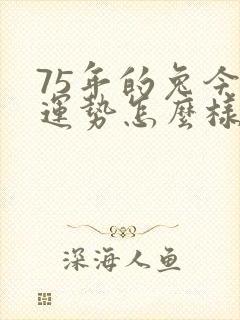 75年的兔今
運势怎麼樣
深海人鱼